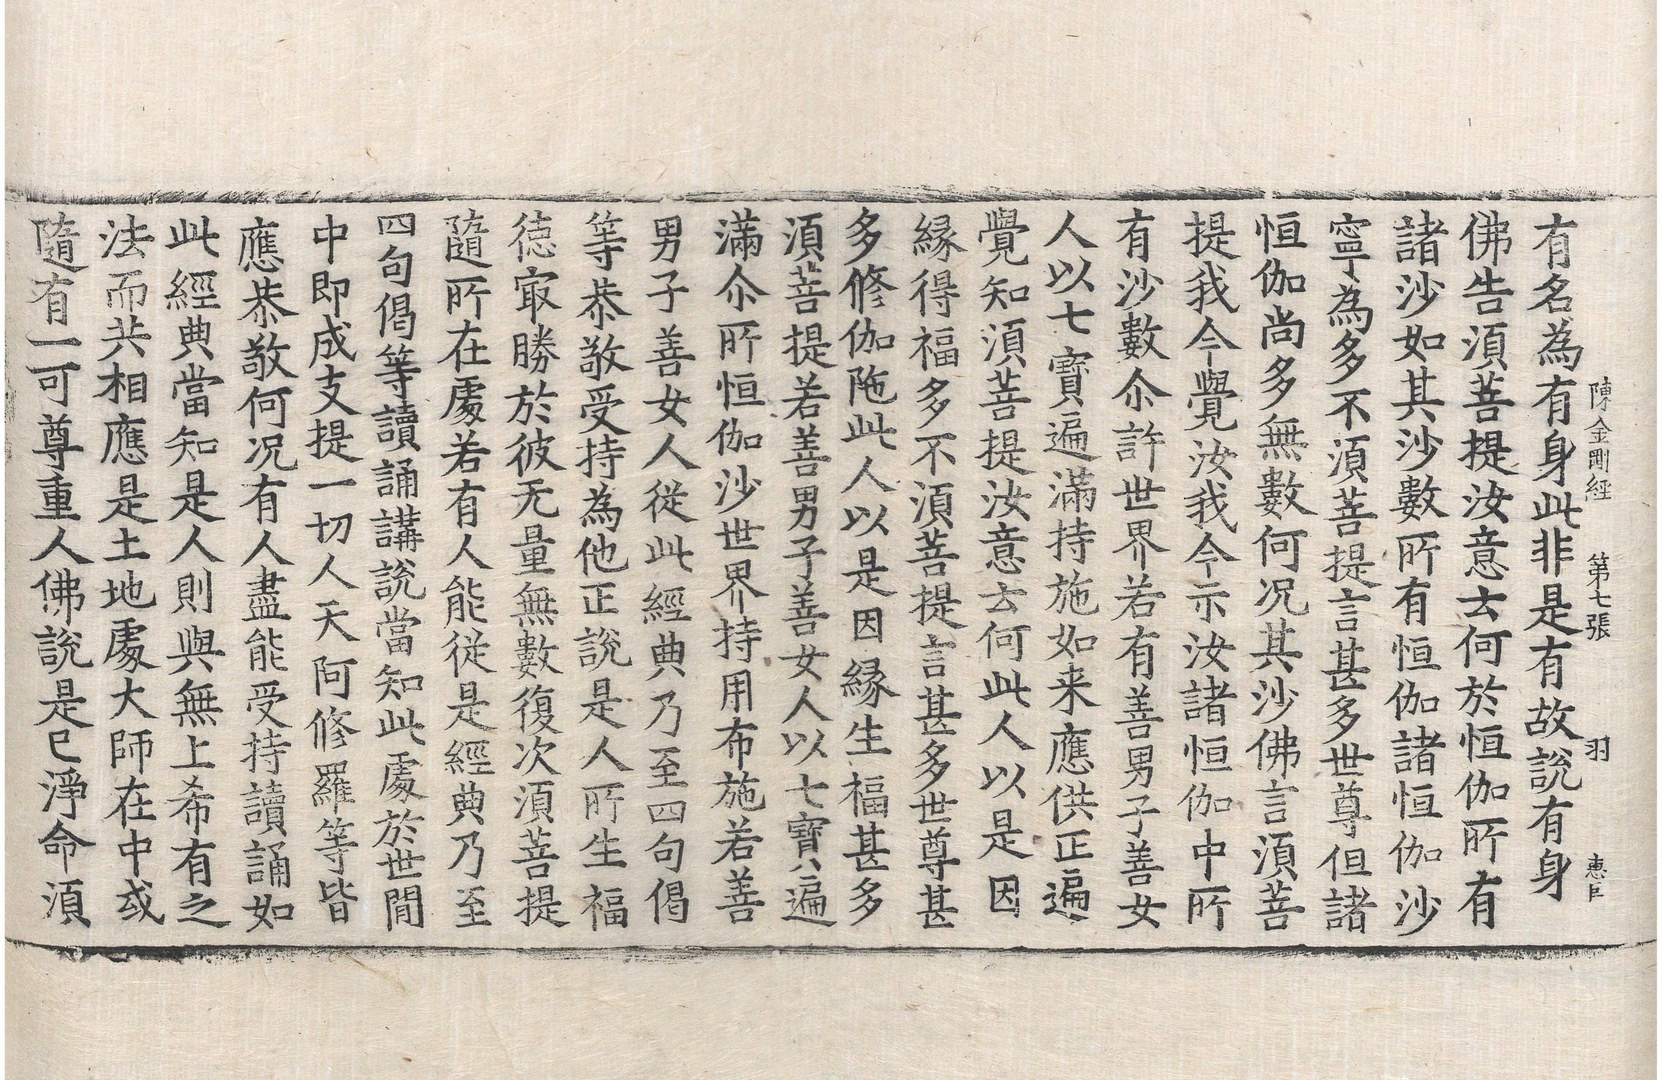 陳金剛經 第七張 羽 惠巨
有名為有身此非是有故說有身
佛告湏菩提汝意云何於恒伽所有
諸沙如其沙數所有恒伽諸恒伽沙
寧為多不湏菩提言甚多世尊但諸
恒伽尚多無數何况其沙佛言湏菩
提我今覺汝我今示汝諸恒伽中所
有沙數尒許世界若有善男子善女
人以七寶遍滿持施如来應供正遍
覺知湏菩提汝意云何此人以是因
緣得福多不湏菩提言甚多世尊甚
多修伽陁此人以是因緣生福甚多
湏菩提若善男子善女人以七寶遍
滿尒所恒伽沙世界持用布施若善
男子善女人從此經典乃至四句偈
等恭敬受持為他正說是人所生福
德㝡勝於彼无量無數復次湏菩提
隨所在處若有人能從是經典乃至
四句偈等讀誦講說當知此處於世間
中即成支提一切人天阿修羅等皆
應恭敬何况有人盡能受持讀誦如
此經典當知是人則與無上希有之
法而共相應是土地處大師在中或
隨有一可尊重人佛說是已淨命湏